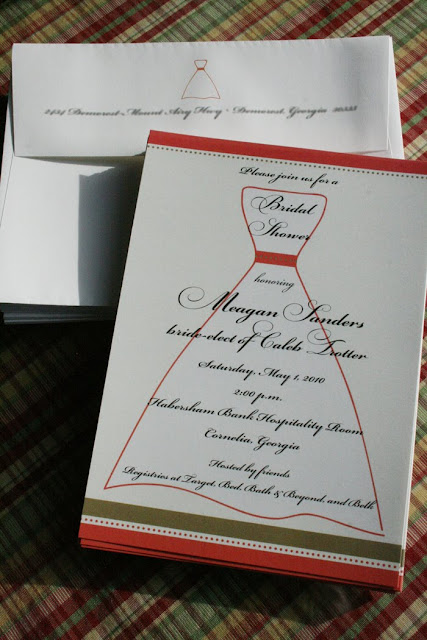 2484 Demorest-Mount Airy Hwy - Demorest, Georgia 30535
Please join us for a
Bridal
Shower
honoring
Meagan Sanders
bride-elect of Caleb Trotter
Saturday, May 1, 2010
2:00 p.m.
Habersham Bank Hospitality Room
Cornelia, Georgia
Hosted by friends
Registries at Target, Bed, Bath & Beyond, and Belk